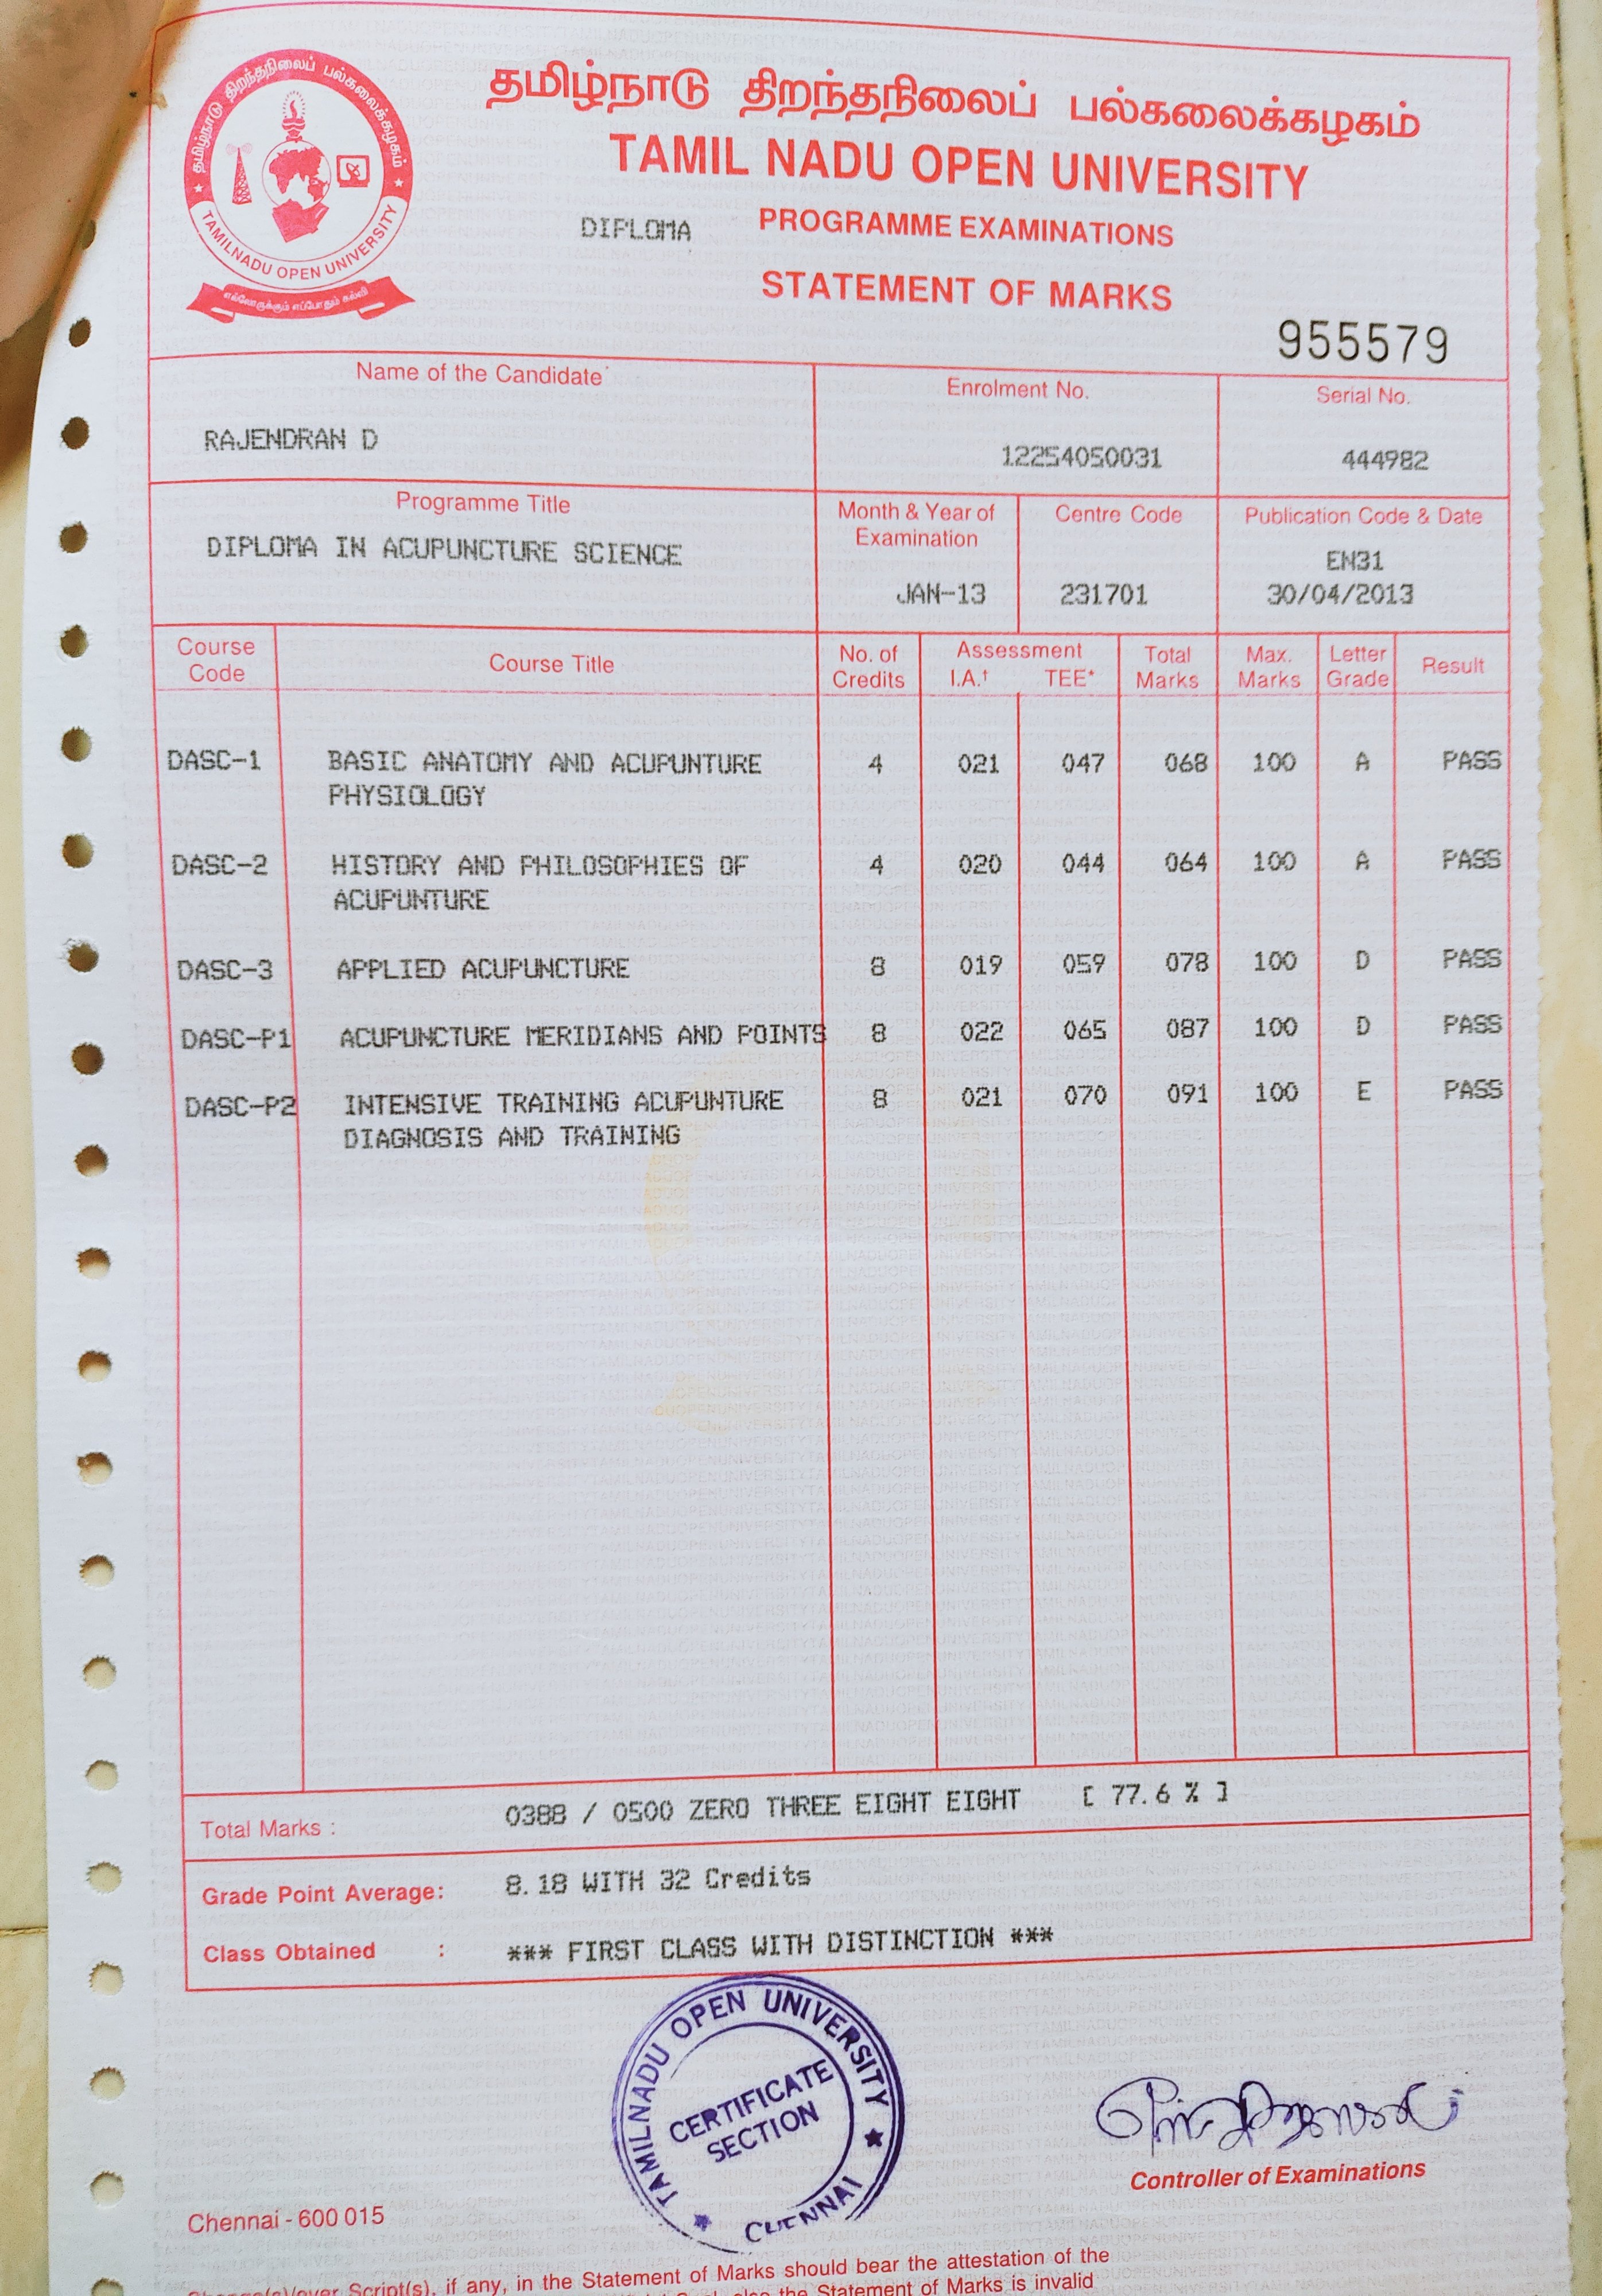 தமிழ்நாடு திறந்தநிலைப் பல்கலைக்கழகம்
TAMILNADU OPEN UNIVERSITY
எல்லோருக்கும் எப்போதும் கல்வி
தமிழ்நாடு திறந்தநிலைப் பல்கலைக்கழகம்
TAMIL NADU OPEN UNIVERSITY
DIPLOMA PROGRAMME EXAMINATIONS
STATEMENT OF MARKS
955579
Name of the Candidate Enrolment No. Serial No.
RAJENDRAN D 12254050031 444982
Programme Title Month & Year of Examination Centre Code Publication Code & Date
DIPLOMA IN ACUPUNCTURE SCIENCE JAN-13 231701 EN31 30/04/2013
Course Code Course Title No. of Credits Assessment I.A.† TEE* Total Marks Max. Marks Letter Grade Result
DASC-1 BASIC ANATOMY AND ACUPUNTURE 4 021 047 068 100 A PASS
PHYSIOLOGY
DASC-2 HISTORY AND PHILOSOPHIES OF 4 020 044 064 100 A PASS
ACUPUNTURE
DASC-3 APPLIED ACUPUNCTURE 8 019 059 078 100 D PASS
DASC-P1 ACUPUNCTURE MERIDIANS AND POINTS 8 022 065 087 100 D PASS
DASC-P2 INTENSIVE TRAINING ACUPUNTURE 8 021 070 091 100 E PASS
DIAGNOSIS AND TRAINING
Total Marks : 0388 / 0500 ZERO THREE EIGHT EIGHT [ 77.6 % ]
Grade Point Average: 8.18 WITH 32 Credits
Class Obtained : *** FIRST CLASS WITH DISTINCTION ***
TAMILNADU OPEN UNIVERSITY
CERTIFICATE
SECTION
CHENNAI
Controller of Examinations
Chennai - 600 015
Script(s), if any, in the Statement of Marks should bear the attestation of the
the Statement of Marks is invalid